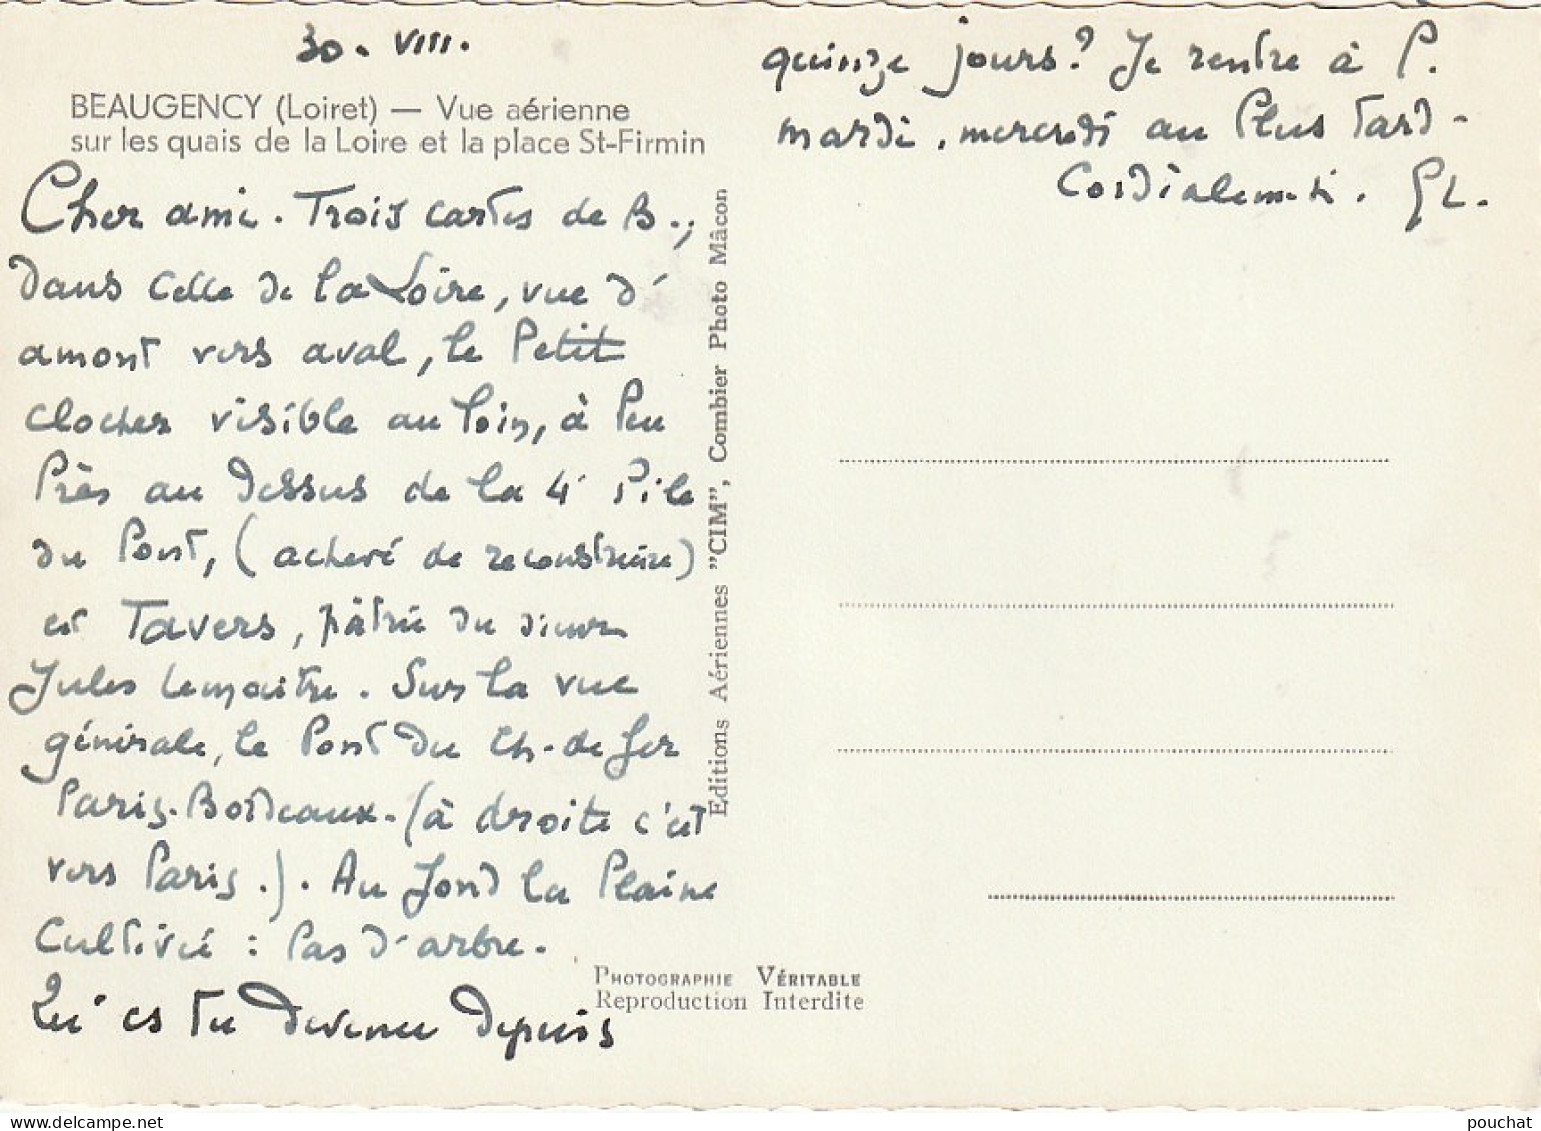 30. VIII.
BEAUGENCY (Loiret) — Vue aérienne
sur les quais de la Loire et la place St-Firmin
Cher ami. Trois cartes de B.,
dans celle de la Loire, vue d'
amont vers aval, le petit
clocher visible au loin, à peu
près au dessus de la 4e pile
du pont, (achevé de reconstruire)
est Tavers, patrie du
Jules Lemaitre. Sur la vue
générale, le pont du ch-de fer
Paris-Bordeaux- (à droite c'est
vers Paris.). Au fond la plaine
cultivée : pas d'arbre.
Qu'es tu devenu depuis
quinze jours? Je rentre à P.
mardi, mercredi au plus tard-
Cordialement. GL.
Editions Aériennes "CIM", Combier Photo Mâcon
PHOTOGRAPHIE VÉRITABLE
Reproduction Interdite
pouchat